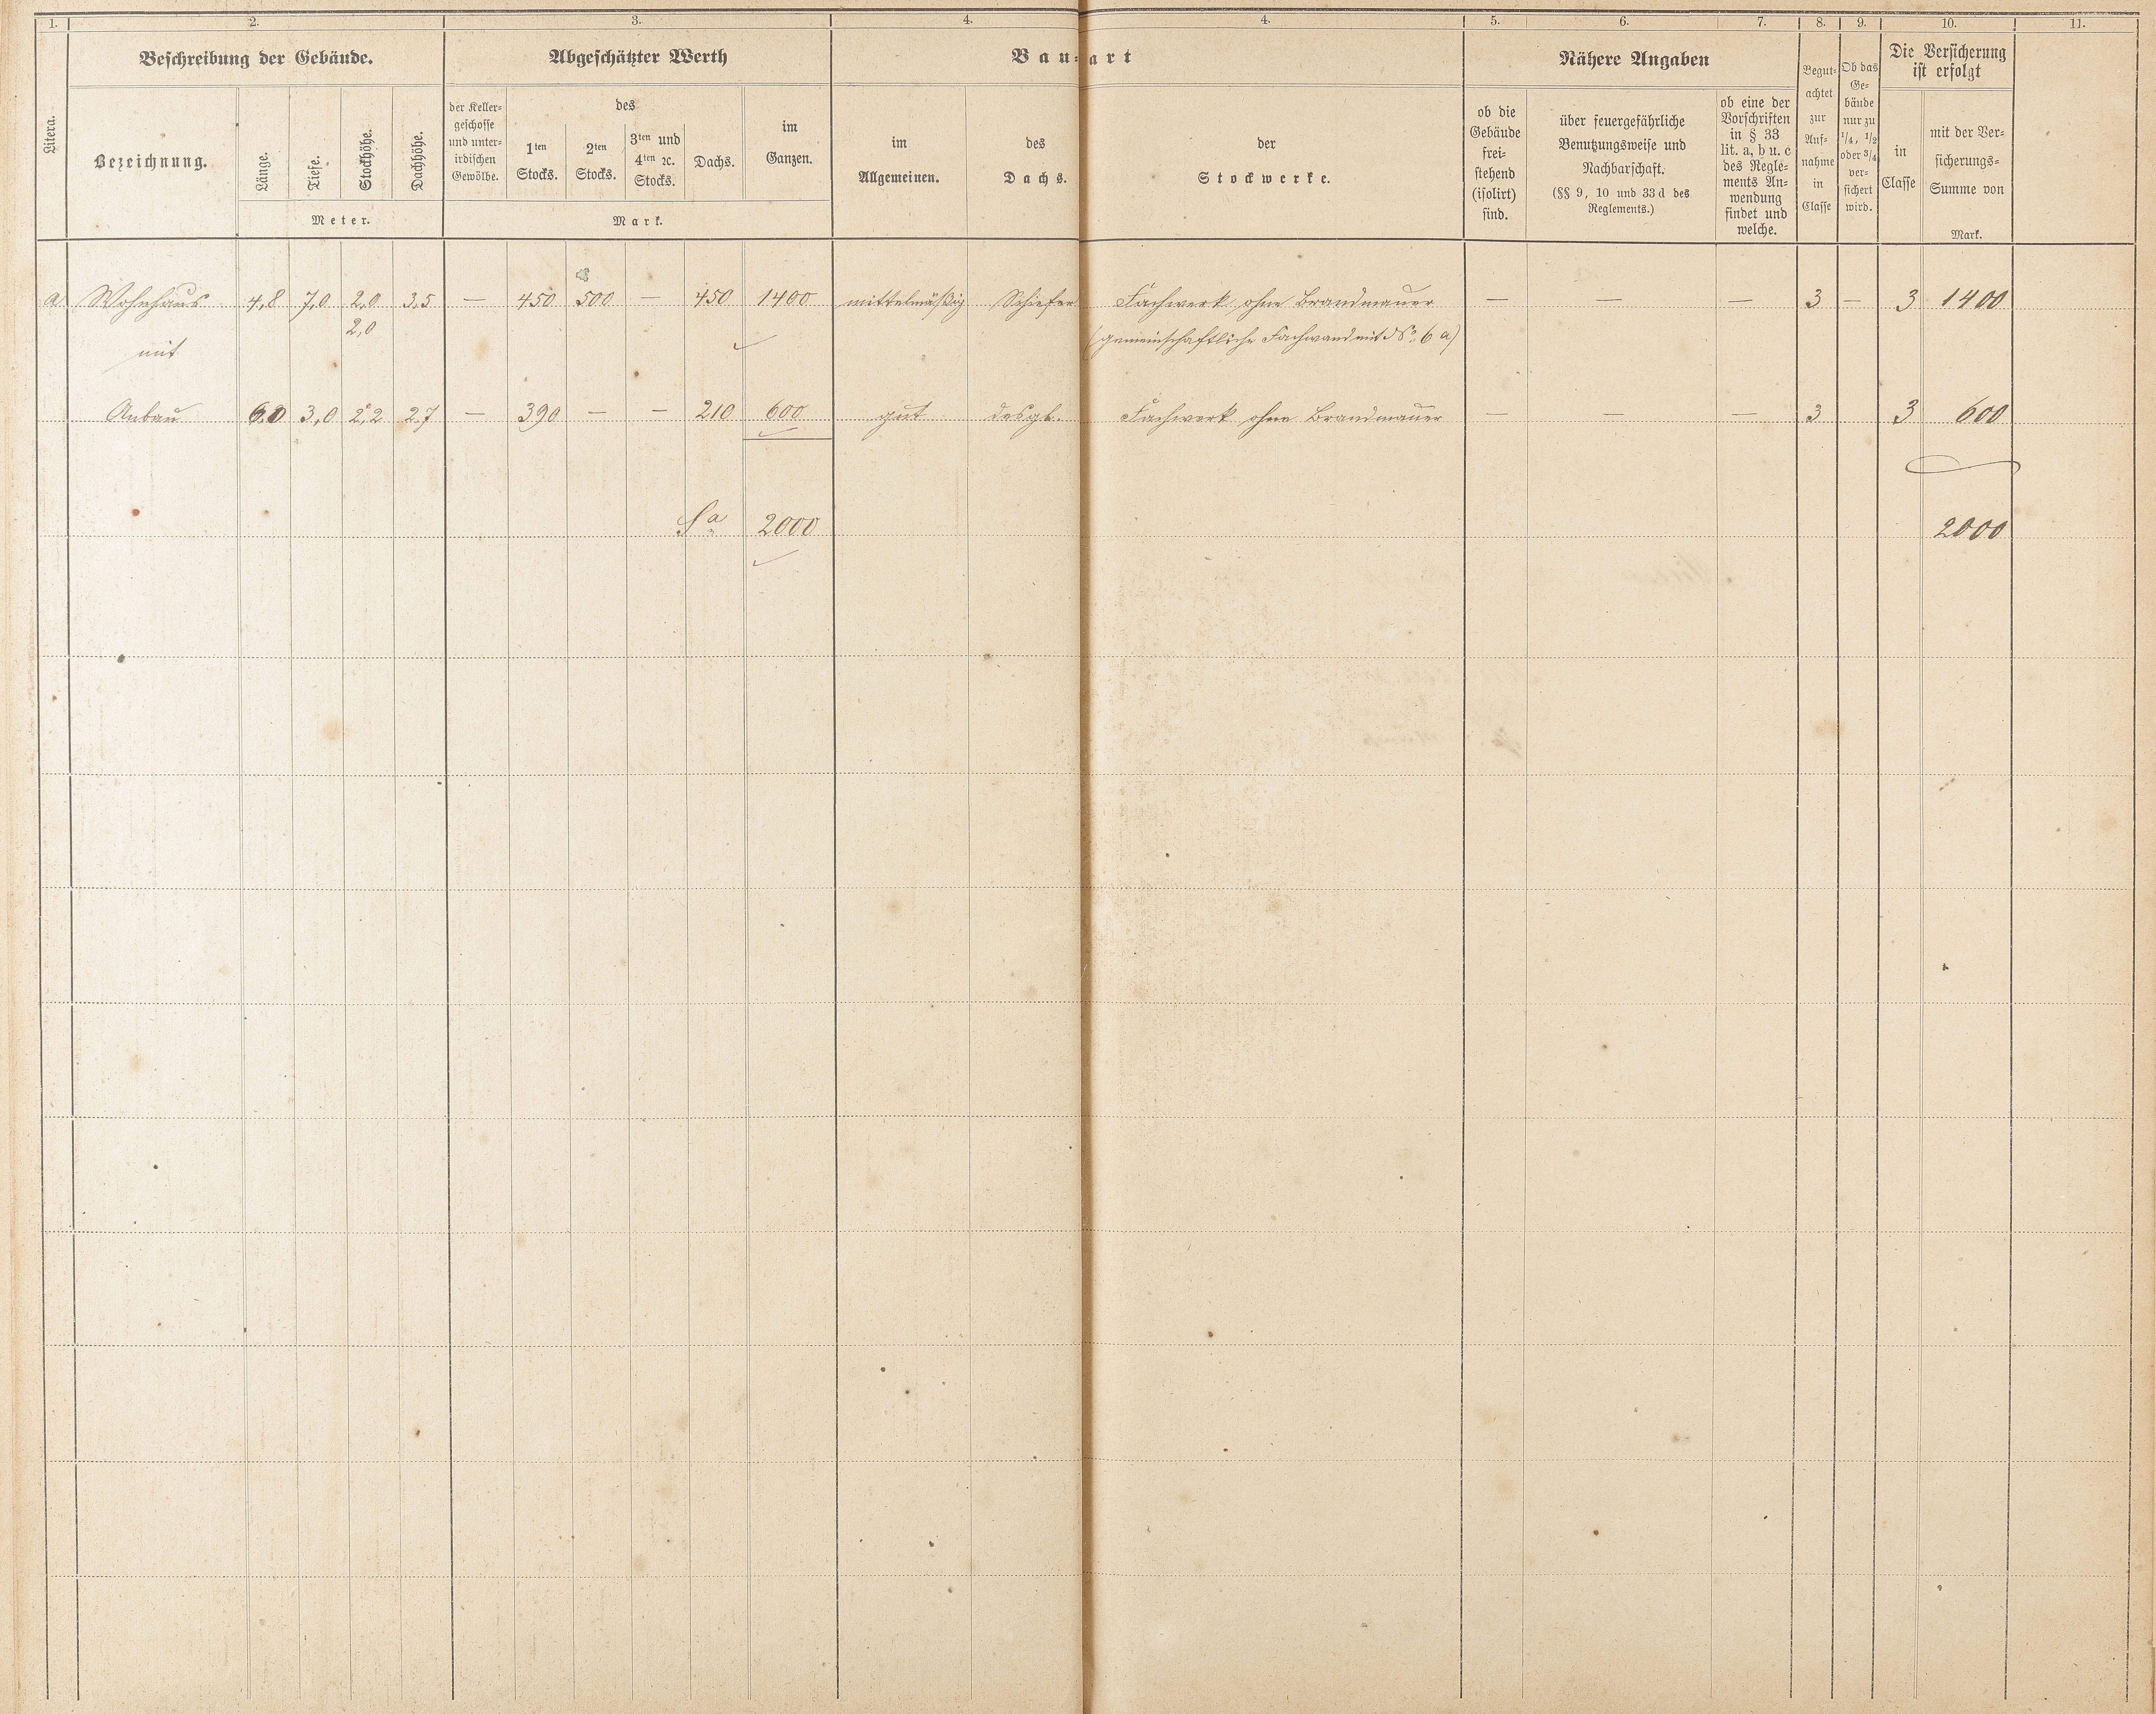 1. 2. 3. 4. 4. 5. 6. 7. 8. 9. 10. 11.
Beschreibung der Gebäude. Abgeschätzter Werth Bau-art Nähere Angaben
Litera.
Bezeichnung.
Länge.
Tiefe.
Stockhöhe.
Dachhöhe.
Meter.
der Keller-
geschosse
und unter-
irdischen
Gewölbe.
des
1ten
Stocks.
2ten
Stocks.
3ten und
4ten ꝛc.
Stocks.
Dachs.
im
Ganzen.
Mark.
im
Allgemeinen.
des
Dachs.
der
Stockwerke.
ob die
Gebäude
frei-
stehend
(isolirt)
sind.
über feuergefährliche
Benutzungsweise und
Nachbarschaft.
(§§ 9, 10 und 33 d des
Reglements.)
ob eine der
Vorschriften
in § 33
lit. a, b u. c
des Regle-
ments An-
wendung
findet und
welche.
Begut-
achtet
zur
Auf-
nahme
in
Classe
Ob das
Ge-
bäude
nur zu
1/4, 1/2
oder 3/4
ver-
sichert
wird.
Die Versicherung
ist erfolgt
in
Classe
mit der Ver-
sicherungs-
Summe von
Mark.
a) Wohnhaus 4,8 7,0 2,0 3,5 — 450 500 — 450 1400 mittelmäßig Schiefer Fachwerk ohne Brandmauer — — — 3 — 3 1400
2,0 (gemeinschaftliche Fachwand mit No. 6 a)
mit
Anbau 6,0 3,0 2,2 2,7 — 390 — — 210 600 gut desgl. Fachwerk ohne Brandmauer — — — 3 3 600
Sa 2000 2000